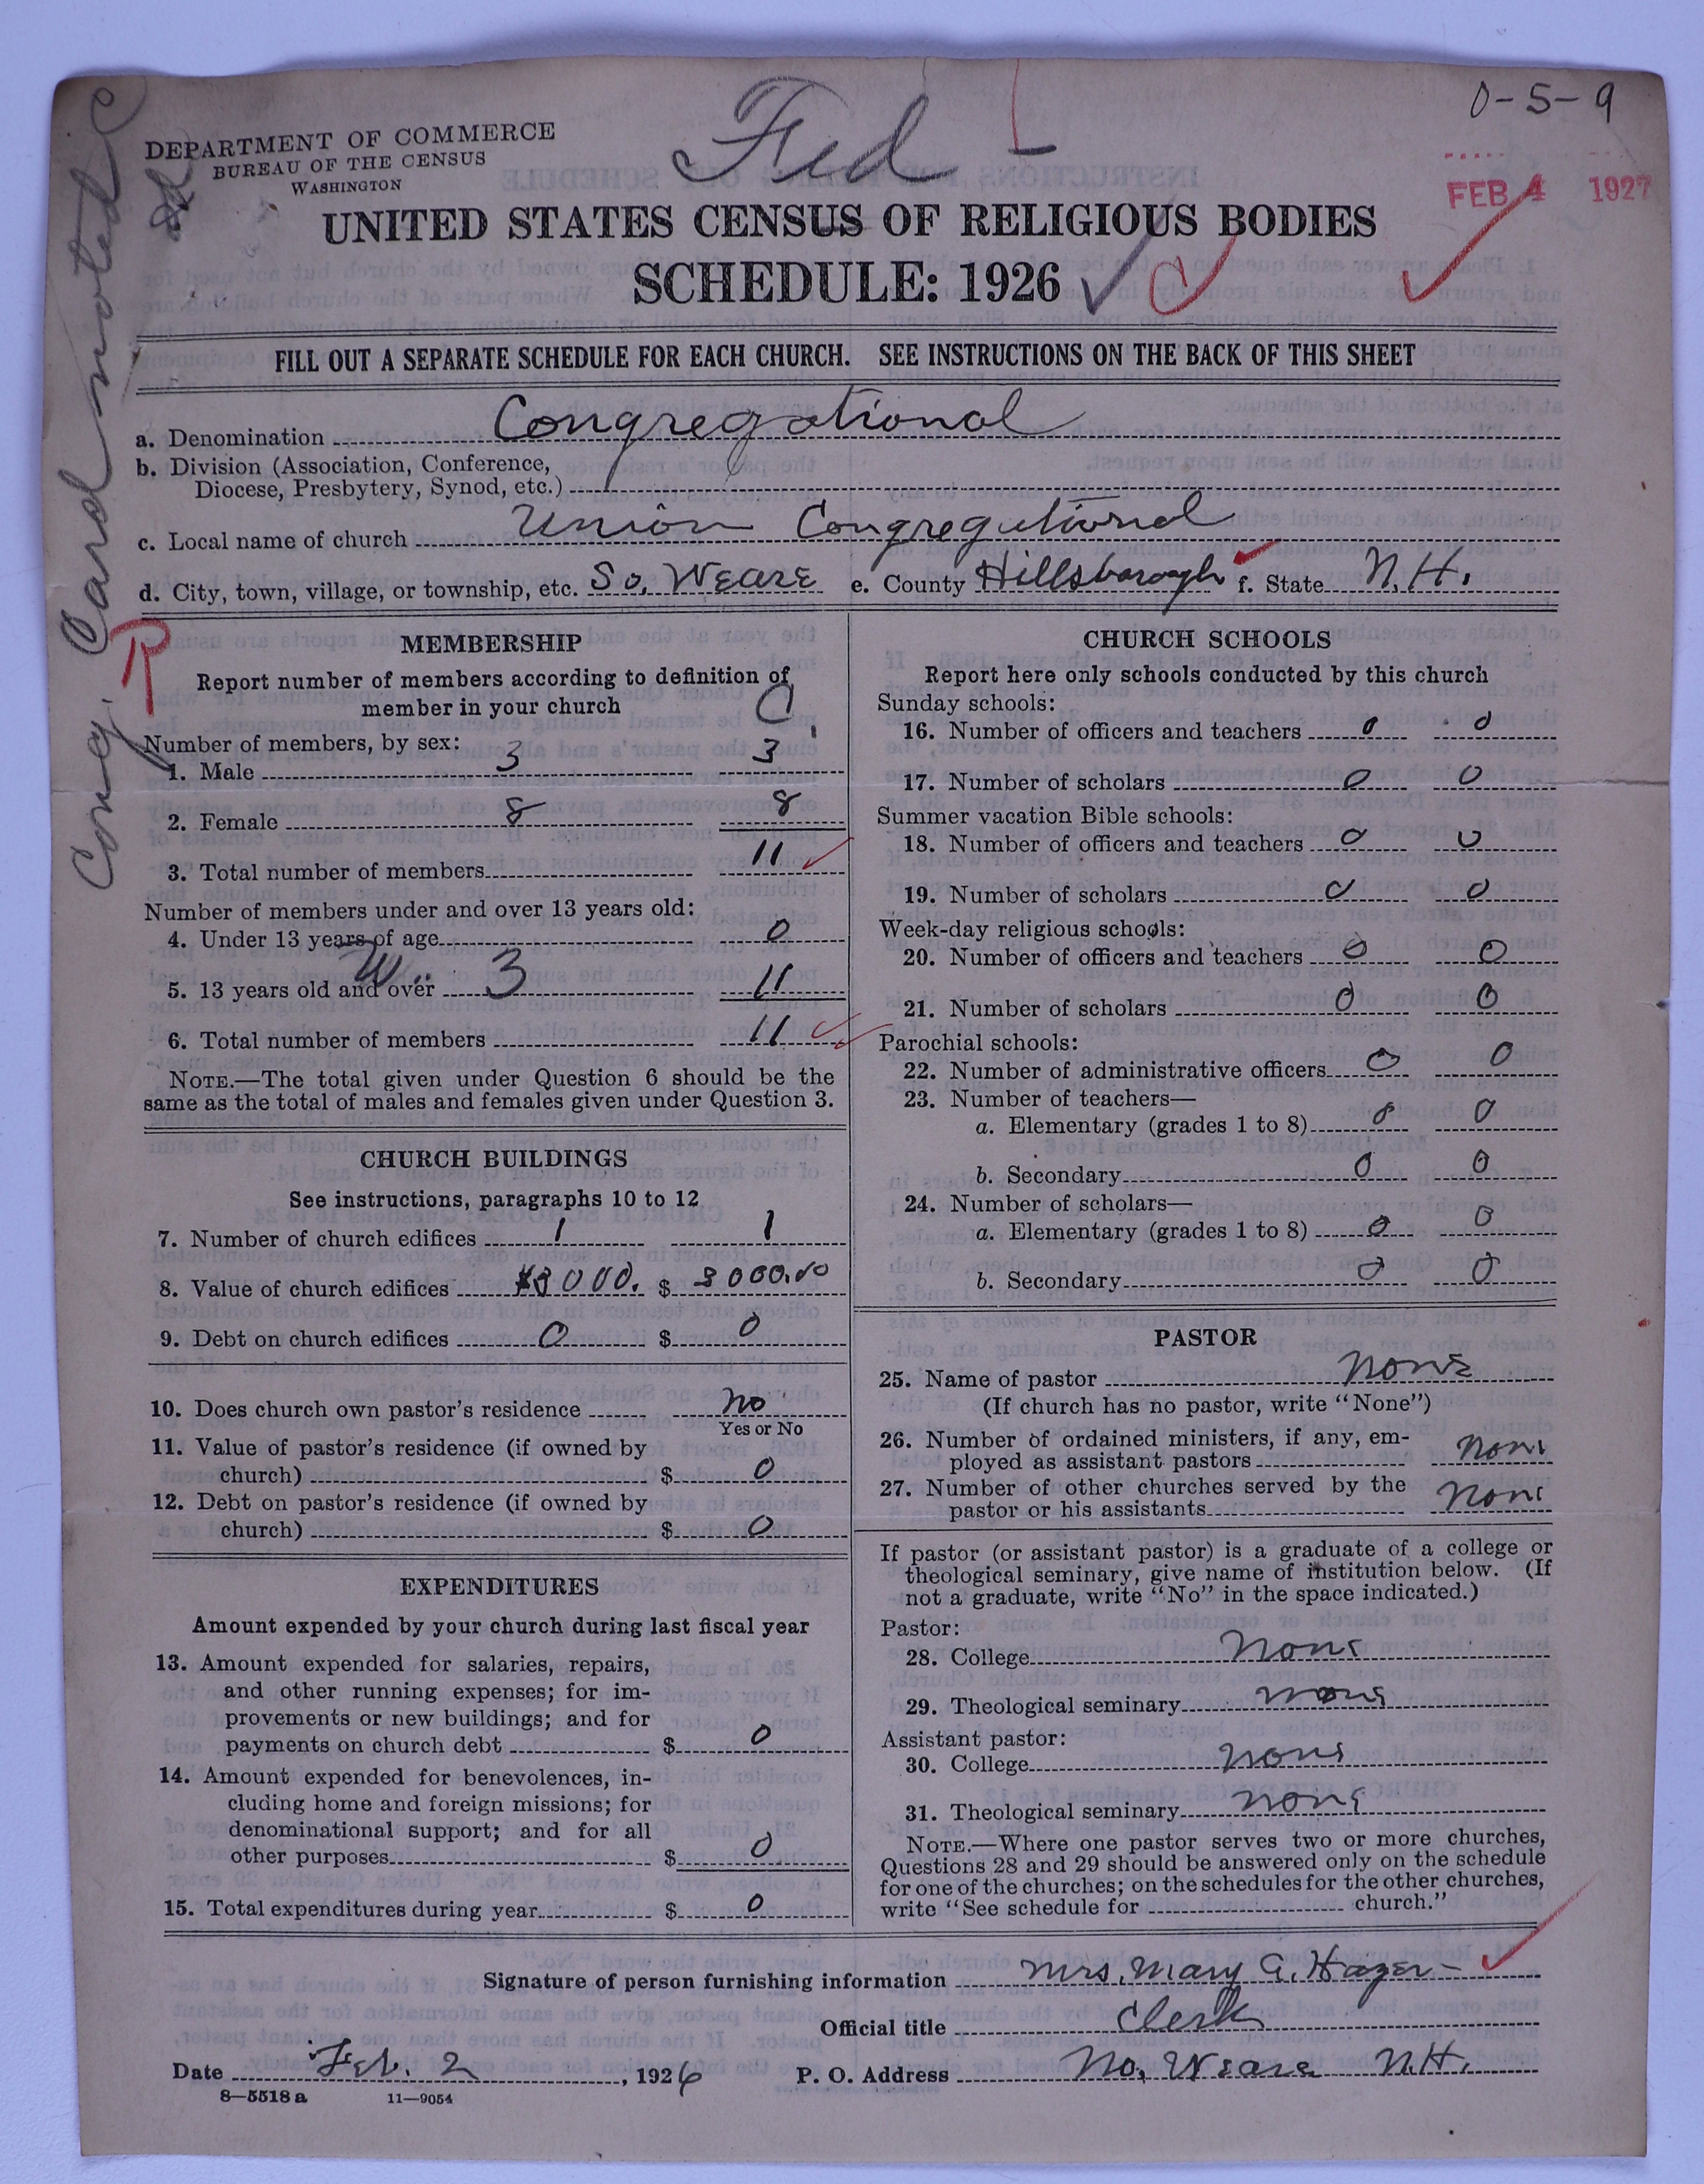 0-5-9
Fed
DEPARTMENT OF COMMERCE
BUREAU OF THE CENSUS
WASHINGTON
FEB 4 1927
UNITED STATES CENSUS OF RELIGIOUS BODIES
SCHEDULE: 1926 C
Cong. Card noted
FILL OUT A SEPARATE SCHEDULE FOR EACH CHURCH. SEE INSTRUCTIONS ON THE BACK OF THIS SHEET
a. Denomination Congregational
b. Division (Association, Conference,
Diocese, Presbytery, Synod, etc.)
c. Local name of church Union Congregational
d. City, town, village, or township, etc. So. Weare e. County Hillsborough f. State N.H.
R
MEMBERSHIP
Report number of members according to definition of
member in your church C
Number of members, by sex:
1. Male 3 3
2. Female 8 8
3. Total number of members 11
Number of members under and over 13 years old:
4. Under 13 years of age 0
W 3
5. 13 years old and over 11
6. Total number of members 11
NOTE.—The total given under Question 6 should be the
same as the total of males and females given under Question 3.
CHURCH BUILDINGS
See instructions, paragraphs 10 to 12
7. Number of church edifices 1 1
8. Value of church edifices $3000. $ 3000.00
9. Debt on church edifices 0 $ 0
10. Does church own pastor's residence no
Yes or No
11. Value of pastor's residence (if owned by
church) $ 0
12. Debt on pastor's residence (if owned by
church) $ 0
EXPENDITURES
Amount expended by your church during last fiscal year
13. Amount expended for salaries, repairs,
and other running expenses; for im-
provements or new buildings; and for
payments on church debt $ 0
14. Amount expended for benevolences, in-
cluding home and foreign missions; for
denominational support; and for all
other purposes $ 0
15. Total expenditures during year $ 0
CHURCH SCHOOLS
Report here only schools conducted by this church
Sunday schools:
16. Number of officers and teachers 0 0
17. Number of scholars 0 0
Summer vacation Bible schools:
18. Number of officers and teachers 0 0
19. Number of scholars 0 0
Week-day religious schools:
20. Number of officers and teachers 0 0
21. Number of scholars 0 0
Parochial schools:
22. Number of administrative officers 0 0
23. Number of teachers—
a. Elementary (grades 1 to 8) 0 0
b. Secondary 0 0
24. Number of scholars—
a. Elementary (grades 1 to 8) 0 0
b. Secondary 0 0
PASTOR
25. Name of pastor None
(If church has no pastor, write "None")
26. Number of ordained ministers, if any, em-
ployed as assistant pastors None
27. Number of other churches served by the
pastor or his assistants None
If pastor (or assistant pastor) is a graduate of a college or
theological seminary, give name of institution below. (If
not a graduate, write "No" in the space indicated.)
Pastor:
28. College None
29. Theological seminary None
Assistant pastor:
30. College None
31. Theological seminary None
NOTE.—Where one pastor serves two or more churches,
Questions 28 and 29 should be answered only on the schedule
for one of the churches; on the schedules for the other churches,
write "See schedule for church."
Signature of person furnishing information Mrs. Mary G. Hazen
Official title Clerk
Date Feb. 2, 1926 P. O. Address No. Weare N.H.
8—5518 a 11—9054